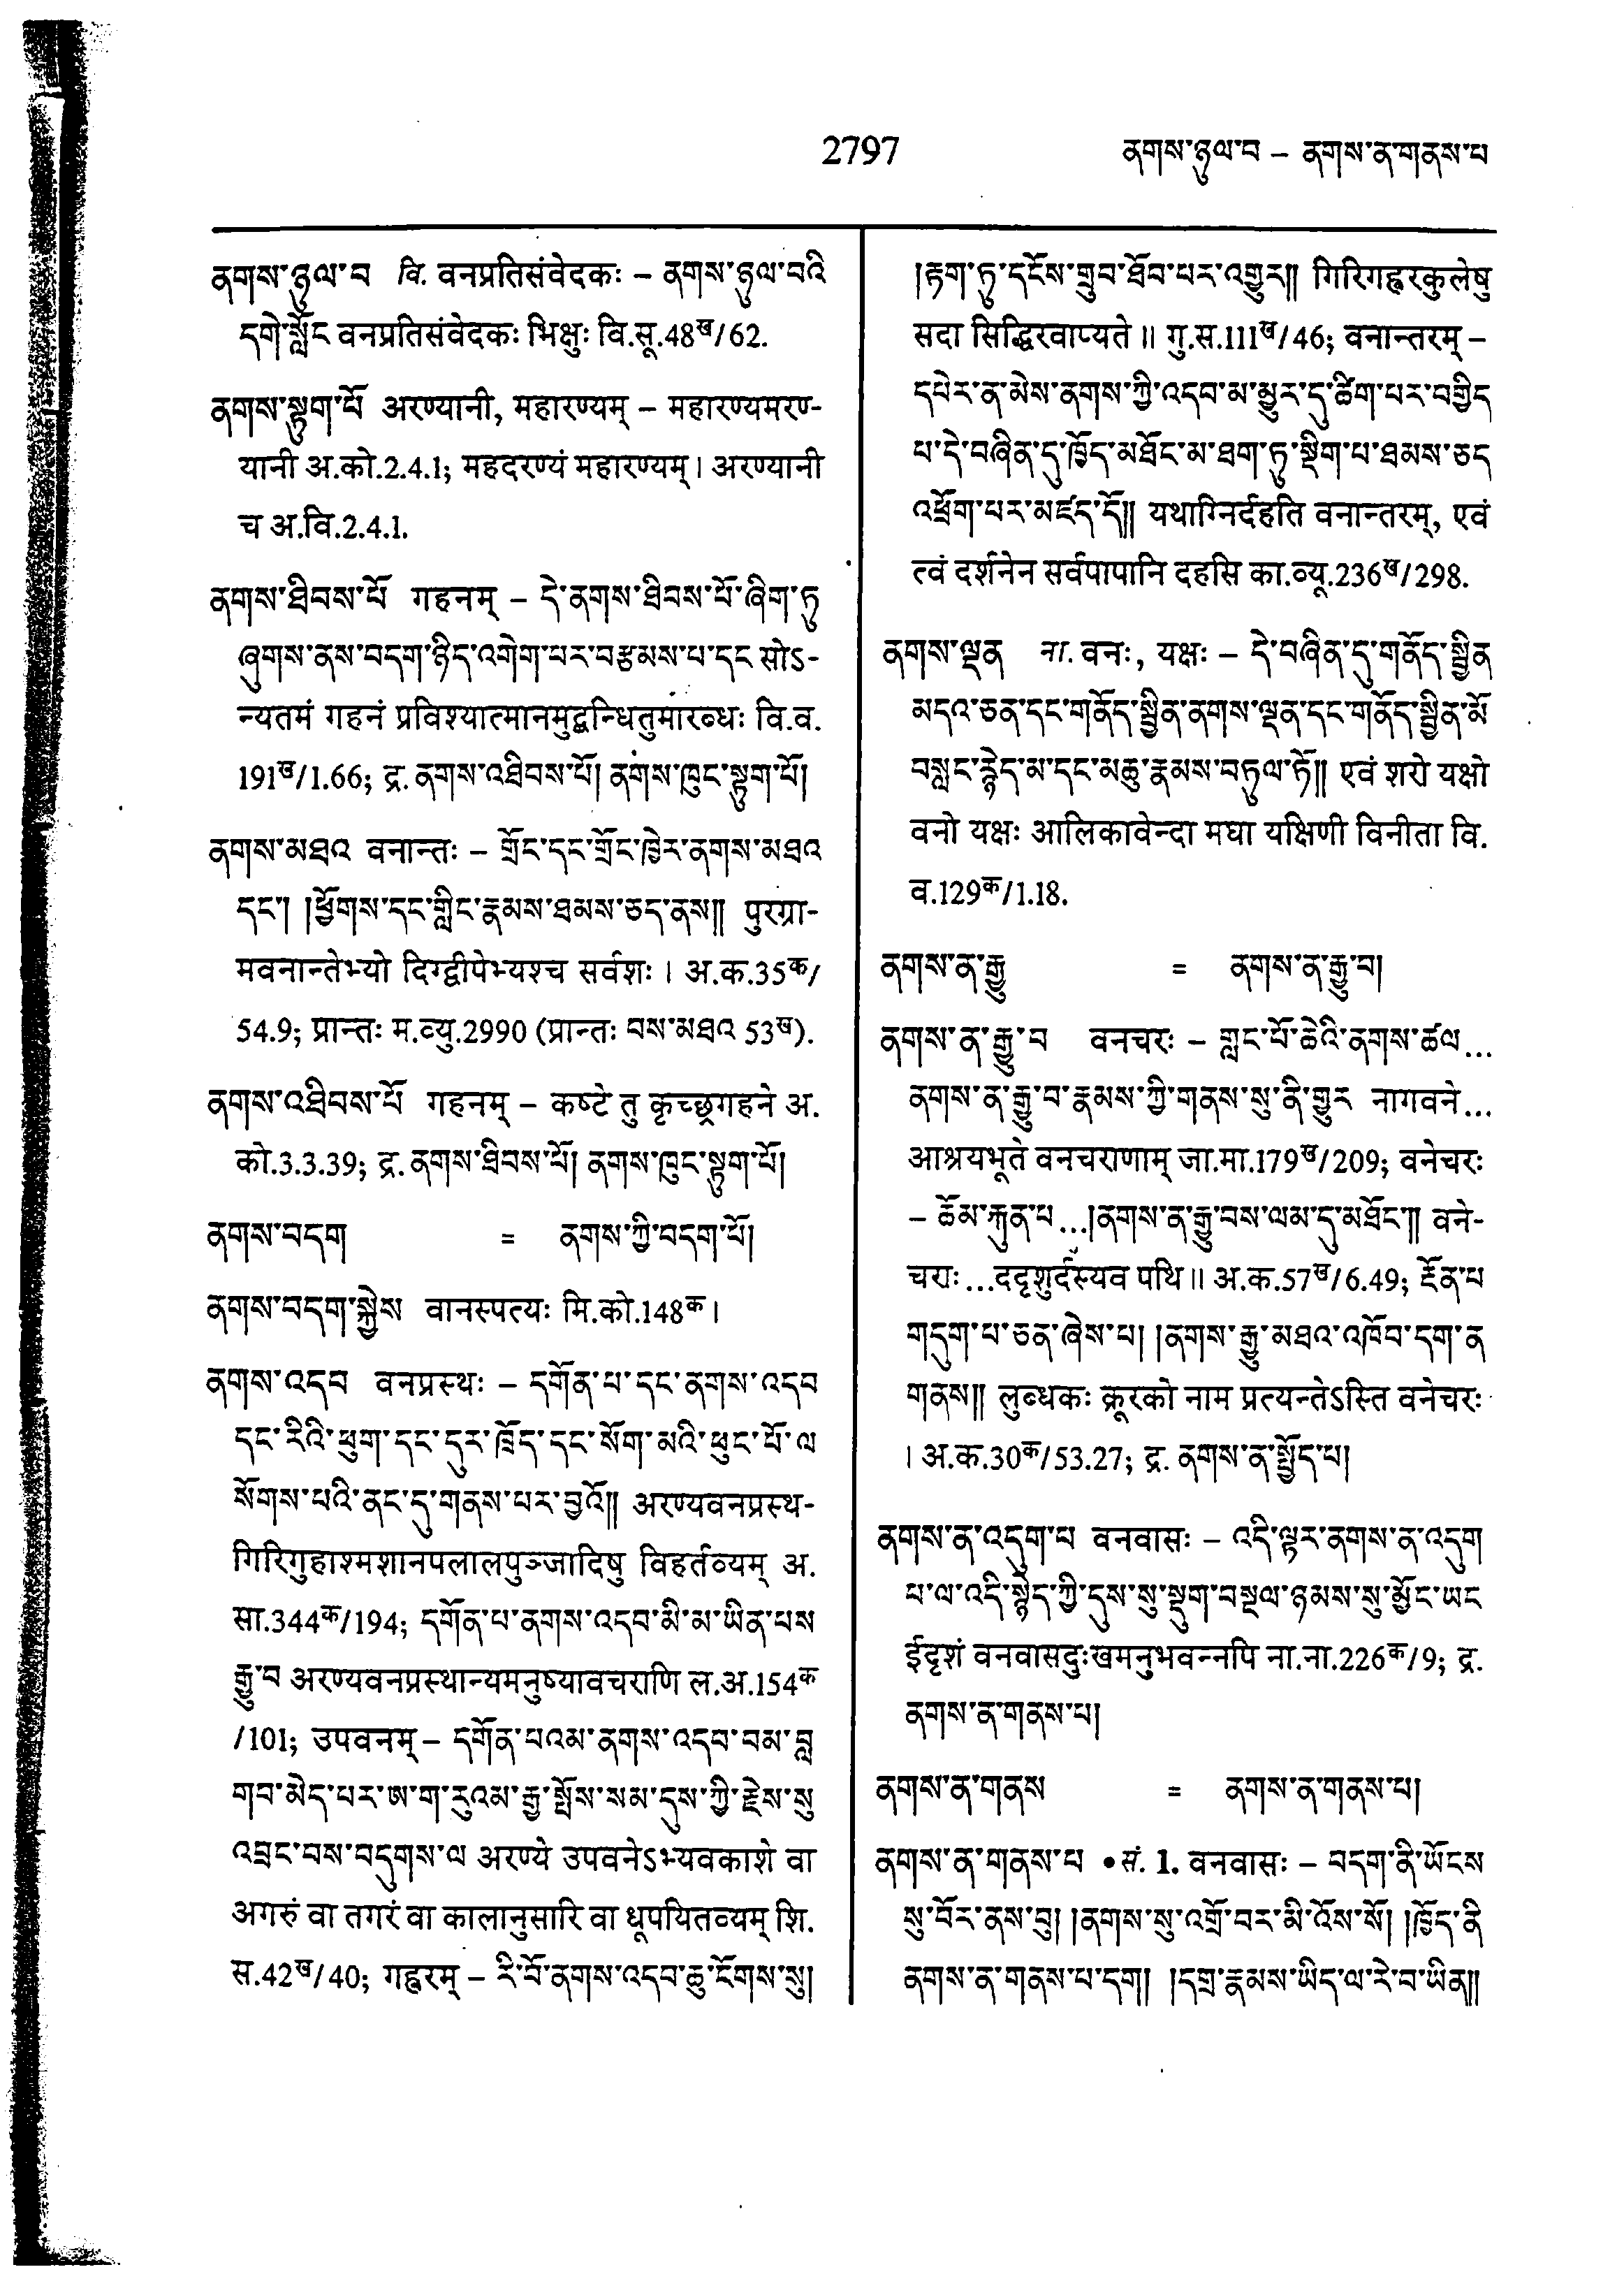 2797
ནགས་ཉུལ་བ – ནགས་ན་གནས་པ
ནགས་ཉུལ་བ वि. वनप्रतिसंवेदकः – ནགས་ཉུལ་བའི
དགེ་སློང वनप्रतिसंवेदकः भिक्षुः वि.सू.48ख/62.
ནགས་སྟུག་པོ अरण्यानी, महारण्यम् – महारण्यमरण-
यानी अ.को.2.4.1; महदरण्यं महारण्यम्। अरण्यानी
च अ.वि.2.4.1.
ནགས་ཐིབས་པོ गहनम् – དེ་ནགས་ཐིབས་པོ་ཞིག་ཏུ
ཞུགས་ནས་བདག་ཉིད་འགེག་པར་བརྩམས་པ་དང सोऽ-
न्यतमं गहनं प्रविश्यात्मानमुद्बन्धितुमारब्धः वि.व.
191ख/1.66; द्र. ནགས་འཐིབས་པོ། ནགས་ཁུང་སྟུག་པོ།
ནགས་མཐའ वनान्तः – གྲོང་དང་གྲོང་ཁྱེར་ནགས་མཐའ
དང་། །ཕྱོགས་དང་གླིང་རྣམས་ཐམས་ཅད་ནས།། पुरग्रा-
मवनान्तेभ्यो दिग्द्वीपेभ्यश्च सर्वशः । अ.क.35क/
54.9; प्रान्तः म.व्यु.2990 (प्रान्तः བས་མཐའ 53ख).
ནགས་འཐིབས་པོ गहनम् – कष्टे तु कृच्छ्रगहने अ.
को.3.3.39; द्र. ནགས་ཐིབས་པོ། ནགས་ཁུང་སྟུག་པོ།
ནགས་བདག = ནགས་ཀྱི་བདག་པོ།
ནགས་བདག་སྐྱེས वानस्पत्यः मि.को.148क।
ནགས་འདབ वनप्रस्थः – དགོན་པ་དང་ནགས་འདབ
དང་རིའི་ཕུག་དང་དུར་ཁྲོད་དང་སོག་མའི་ཕུང་པོ་ལ
སོགས་པའི་ནང་དུ་གནས་པར་བྱའོ།། अरण्यवनप्रस्थ-
गिरिगुहाश्मशानपलालपुञ्जादिषु विहर्तव्यम् अ.
सा.344क/194; དགོན་པ་ནགས་འདབ་མི་མ་ཡིན་པས
རྒྱུ་བ अरण्यवनप्रस्थान्यमनुष्यावचराणि ल.अ.154क
/101; उपवनम् – དགོན་པའམ་ནགས་འདབ་བམ་བླ
གབ་མེད་པར་ཨ་ག་རུའམ་རྒྱ་སྤོས་སམ་དུས་ཀྱི་རྗེས་སུ
འབྲང་བས་བདུགས་ལ अरण्ये उपवनेऽभ्यवकाशे वा
अगरुं वा तगरं वा कालानुसारि वा धूपयितव्यम् शि.
स.42ख/40; गह्वरम् – རི་བོ་ནགས་འདབ་ཆུ་ངོགས་སུ།
།རྟག་ཏུ་དངོས་གྲུབ་ཐོབ་པར་འགྱུར།། गिरिगह्वरकुलेषु
सदा सिद्धिरवाप्यते॥ गु.स.111ख/46; वनान्तरम् –
དཔེར་ན་མེས་ནགས་ཀྱི་འདབ་མ་མྱུར་དུ་ཚིག་པར་བགྱིད
པ་དེ་བཞིན་དུ་ཁྱོད་མཐོང་མ་ཐག་ཏུ་སྡིག་པ་ཐམས་ཅད
འཕྲོག་པར་མཛད་དོ།། यथाग्निर्दहति वनान्तरम्, एवं
त्वं दर्शनेन सर्वपापानि दहसि का.व्यू.236ख/298.
ནགས་ལྡན ना. वनः, यक्षः – དེ་བཞིན་དུ་གནོད་སྦྱིན
མདའ་ཅན་དང་གནོད་སྦྱིན་ནགས་ལྡན་དང་གནོད་སྦྱིན་མོ
བསླང་རྙེད་མ་དང་མཆུ་རྣམས་བཏུལ་ཏོ།། एवं शरो यक्षो
वनो यक्षः आलिकावेन्दा मघा यक्षिणी विनीता वि.
व.129क/1.18.
ནགས་ན་རྒྱུ = ནགས་ན་རྒྱུ་བ།
ནགས་ན་རྒྱུ་བ वनचरः – གླང་པོ་ཆེའི་ནགས་ཚལ...
ནགས་ན་རྒྱུ་བ་རྣམས་ཀྱི་གནས་སུ་ནི་གྱུར नागवने...
आश्रयभूते वनचराणाम् जा.मा.179ख/209; वनेचरः
– ཆོམ་རྐུན་པ...།ནགས་ན་རྒྱུ་བས་ལམ་དུ་མཐོང་།། वने-
चराः...ददृशुर्दस्यव पथि॥ अ.क.57ख/6.49; རྔོན་པ
གདུག་པ་ཅན་ཞེས་པ། །ནགས་རྒྱུ་མཐའ་འཁོབ་དག་ན
གནས།། लुब्धकः क्रूरको नाम प्रत्यन्तेऽस्ति वनेचरः
। अ.क.30क/53.27; द्र. ནགས་ན་སྤྱོད་པ།
ནགས་ན་འདུག་པ वनवासः – འདི་ལྟར་ནགས་ན་འདུག
པ་ལ་འདི་སྙེད་ཀྱི་དུས་སུ་སྡུག་བསྔལ་ཉམས་སུ་མྱོང་ཡང
ईदृशं वनवासदुःखमनुभवन्नपि ना.ना.226क/9; द्र.
ནགས་ན་གནས་པ།
ནགས་ན་གནས = ནགས་ན་གནས་པ།
ནགས་ན་གནས་པ • सं. 1. वनवासः – བདག་ནི་ཡོངས
སུ་བོར་ནས་བུ། །ནགས་སུ་འགྲོ་བར་མི་འོས་སོ། །ཁྱོད་ནི
ནགས་ན་གནས་པ་དག། །དགྲ་རྣམས་ཡིད་ལ་རེ་བ་ཡིན།།